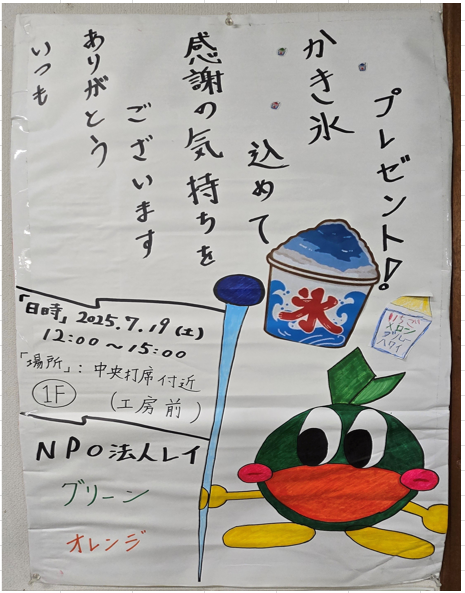 いつも
ありがとう
ございます
感謝の気持ちを
込めて
かき氷
プレゼント!
氷
いちご
メロン
ブルー
ハワイ
「日時」2025.7.19(土)
12:00~15:00
「場所」:中央打席付近
1F
(工房前)
NPO法人レイ
グリーン
オレンジ